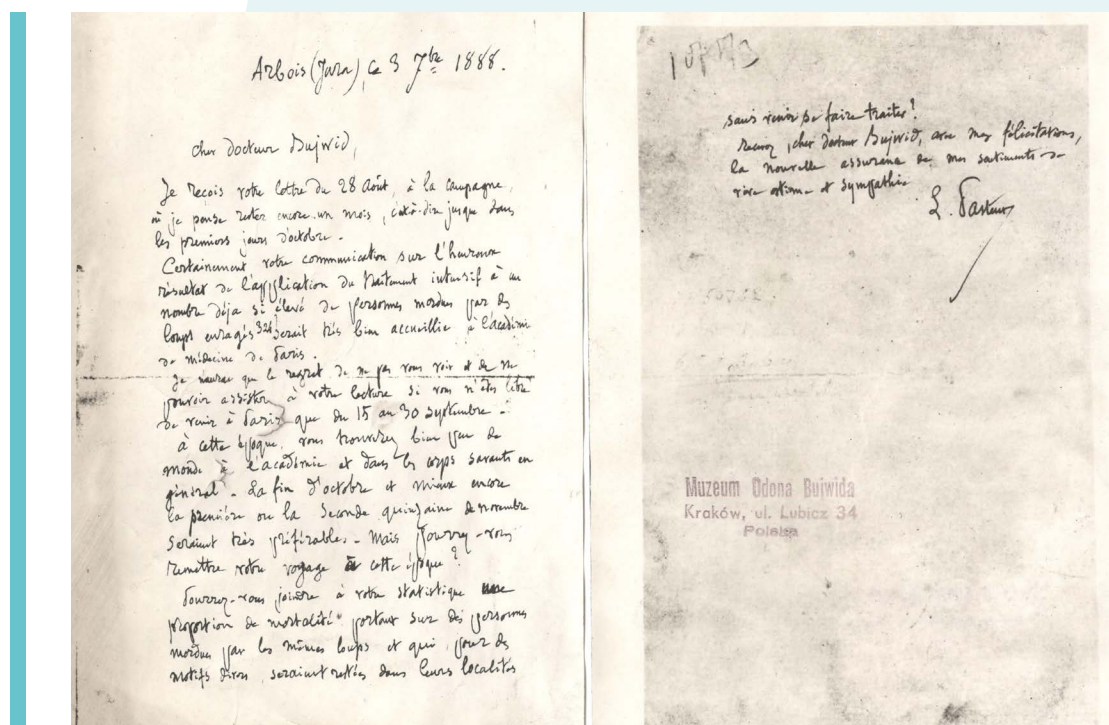 Arbois (Jura), ce 3 7bre 1888.
cher Docteur Bujwid,
Je reçois votre lettre du 28 Août, à la campagne,
où je pense rester encore un mois, c'est-à-dire jusque dans
les premiers jours d'octobre.
Certainement votre communication sur l'heureux
résultat de l'application du traitement intensif à un
nombre déjà si élevé de personnes mordues par des
loups enragés serait très bien accueillie à l'académie
de médecine de Paris.
Je n'aurai que le regret de ne pas vous voir et de ne
pouvoir assister à votre lecture si vous n'êtes libre
de venir à Paris que du 15 au 30 Septembre -
à cette époque, vous trouverez bien peu de
monde à l'académie et dans les corps savants en
général. La fin d'octobre et mieux encore
la première ou la seconde quinzaine de novembre
seraient très préférables. Mais pourrez-vous
remettre votre voyage à cette époque?
Pourrez-vous joindre à votre statistique une
proportion de mortalité portant sur des personnes
mordues par les mêmes loups et qui, pour des
motifs divers, seraient restées dans leurs localités
sans venir se faire traiter?
Recevez, cher Docteur Bujwid, avec mes félicitations,
la nouvelle assurance de mes sentiments de
vive estime et sympathie
L. Pasteur
Muzeum Odona Bujwida
Kraków, ul. Lubicz 34
Polska